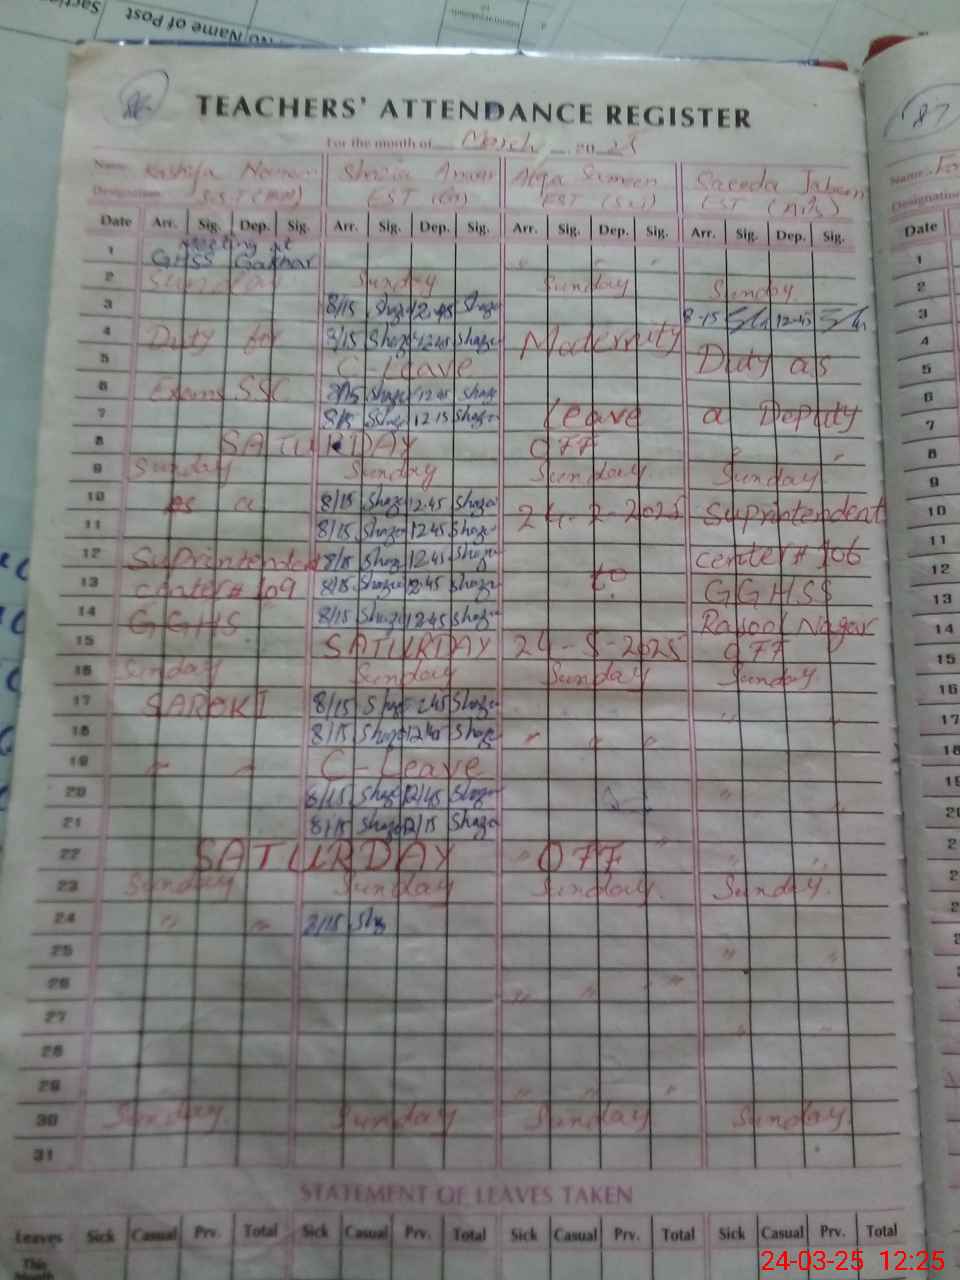 No Name of Post
86
TEACHERS' ATTENDANCE REGISTER
For the month of March 2025
Name Kashifa Shazia Anwar Aiqa Sameen Saeeda Jabeen
Designation S.S.T EST EST EST
Date Arr. Sig. Dep. Sig. Arr. Sig. Dep. Sig. Arr. Sig. Dep. Sig. Arr. Sig. Dep. Sig.
1 Meeting at GHSS Gakhar
2 Sunday Sunday Sunday Sunday
3 8/15 12.45 8-15 12-45
4 Duty for 8/15 12.45 Maternity
5 C-Leave Duty as
6 Exams SSC 8/15 12.45
7 8/15 12.15 Leave a Deputy
8 SATURDAY OFF
9 Sunday Sunday Sunday Sunday
10 as a 8/15 12.45 24-2-2025 Suprintendent
11 8/15 12.45
12 Suprintendent 8/15 12.45 center # 106
13 center # 109 8/15 12.45 to GGHSS
14 GGHS 8/15 12.45 Rasool Nagar
15 SATURDAY 24-5-2025 OFF
16 Sunday Sunday Sunday Sunday
17 SAROKI 8/15 12.45
18 8/15 12.45 " " "
19 " " C-Leave
20 8/15 12/45
21 8/15 12/15
22 SATURDAY OFF
23 Sunday Sunday Sunday Sunday
24 " " 8/15
25 " "
26 " " "
27 " "
28
29 " " "
30 Sunday Sunday Sunday Sunday
31
STATEMENT OF LEAVES TAKEN
Leaves Sick Casual Prv. Total Sick Casual Prv. Total Sick Casual Prv. Total Sick Casual Prv. Total
This Month
87
Name
Designation
Date
1
2
3
4
5
6
7
8
9
10
11
12
13
14
15
16
17
18
24-03-25 12:25